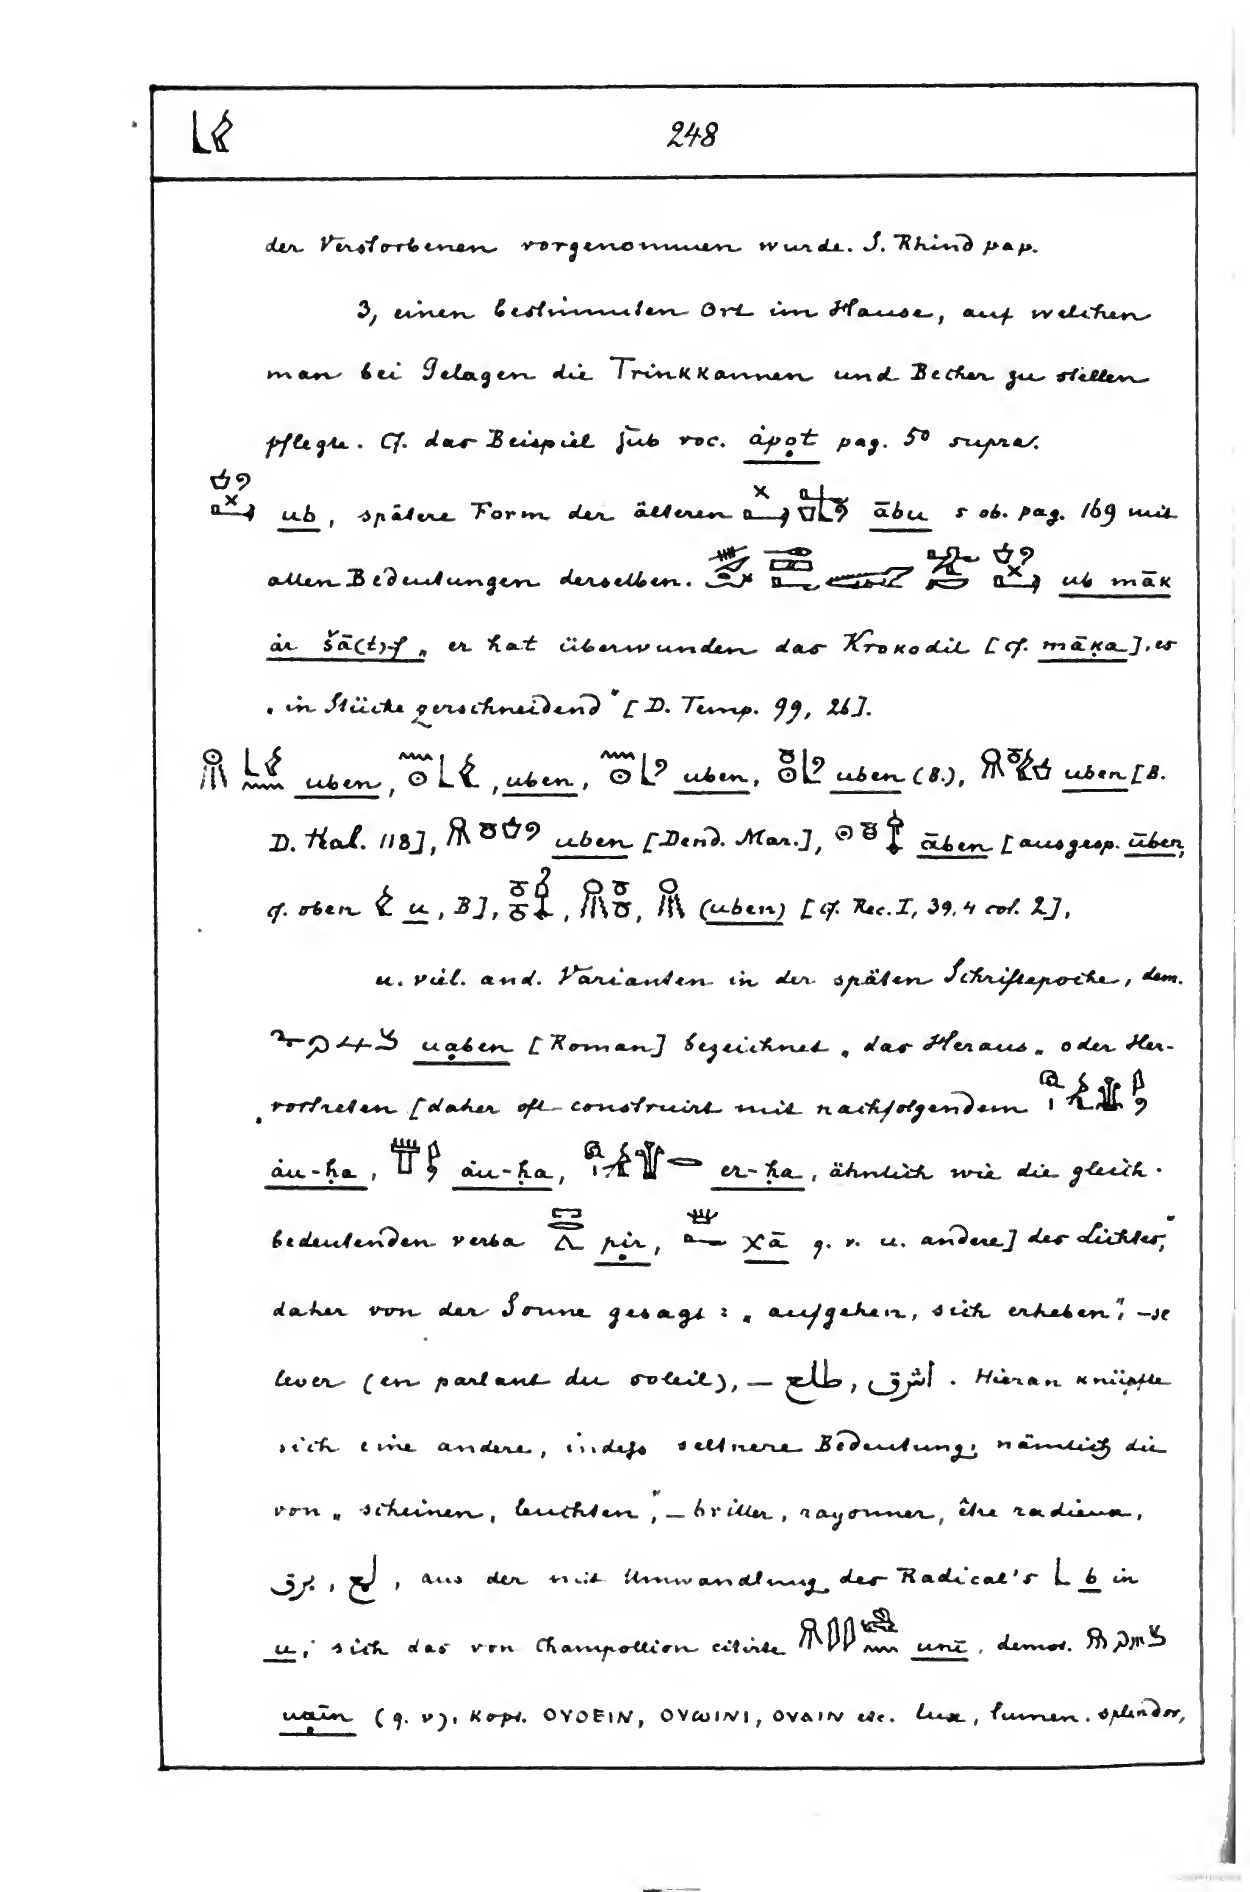 248
der Verstorbenen vorgenommen wurde. S. Rhind pap.
3, einen bestimmten Ort im Hause, auf welchen
man bei Gelagen die Trinkkannen und Becher zu stellen
pflegte. Cf. das Beispiel sub voc. ȧpọt pag. 50 supra.
ub, spätere Form der älteren ābu s ob. pag. 169 mit
allen Bedeutungen derselben. ub māk
ȧr šā(t)-f „ er hat überwunden das Krokodil [cf. māḳa], es
„ in Stücke zerschneidend" [D. Temp. 99, 26].
uben, uben, uben, uben (B.), uben [B.
D. Kal. 118], uben [Dend. Mar.], āben [ausgesp. ūben,
cf. oben u, B], , , (uben) [cf. Rec. I, 39, 4 col. 2],
u. viel. and. Varianten in der späten Schriftepoche, dem.
uạben [Roman] bezeichnet „das Heraus„ oder Her-
„vortreten [daher oft construirt mit nachfolgendem
ȧu-ḥa, ȧu-ḥa, er-ḥa, ähnlich wie die gleich-
bedeutenden verba pịr, χā q. v. u. andere] des Lichtes",
daher von der Sonne gesagt: „aufgehen, sich erheben", – se
lever (en parlant du soleil), – طلع, اشرق. Hieran knüpfte
sich eine andere, indeß seltnere Bedeutung, nämlich die
von „scheinen, leuchten", – briller, rayonner, être radieux,
برق, لمع, aus der mit Umwandlung des Radical's b in
u, sich das von Champollion citirte unī, demot.
uạīn (q. v), kopt. ΟΥΟΕΙΝ, ΟΥΩΙΝΙ, ΟΥΑΙΝ etc. lux, lumen, splendor,